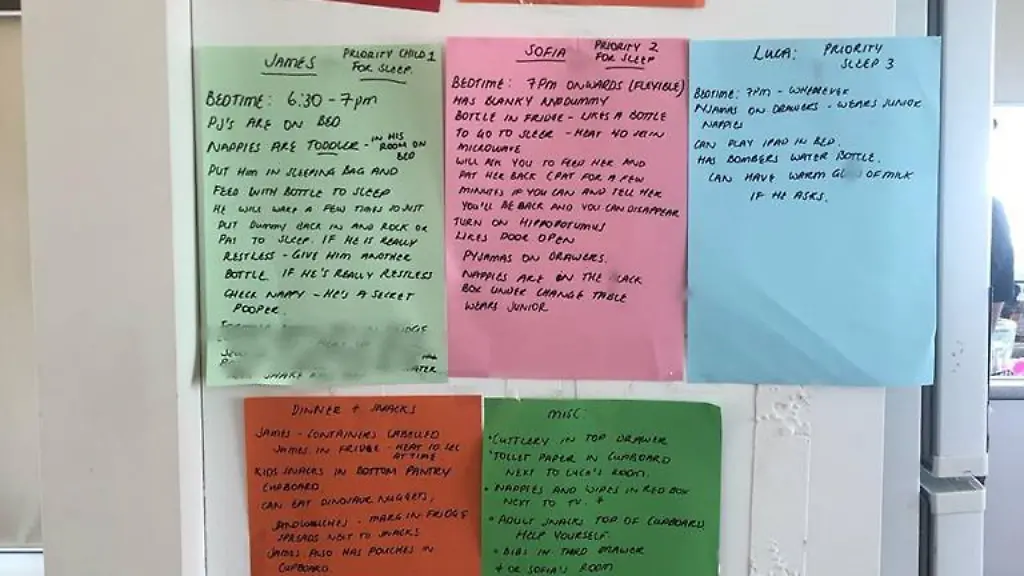 JAMES PRIORITY CHILD 1
FOR SLEEP.
BEDTIME: 6:30 - 7pm
PJ'S ARE ON BED
NAPPIES ARE TODDLER - IN HIS
ROOM ON
BED
PUT HIM IN SLEEPING BAG AND
FEED WITH BOTTLE TO SLEEP
HE WILL WAKE A FEW TIMES TO JUST
PUT DUMMY BACK IN AND ROCK OR
PAT TO SLEEP. IF HE IS REALLY
RESTLESS - GIVE HIM ANOTHER
BOTTLE IF HE'S REALLY RESTLESS
CHECK NAPPY - HE'S A SECRET
POOPER.
SOFIA PRIORITY 2
FOR SLEEP
BEDTIME: 7PM ONWARDS (FLEXIBLE)
HAS BLANKY AND DUMMY
BOTTLE IN FRIDGE - LIKES A BOTTLE
TO GO TO SLEEP - HEAT 40 IN
MICROWAVE
WILL ASK YOU TO FEED HER AND
PAT HER BACK (PAT FOR A FEW
MINUTES IF YOU CAN AND TELL HER
YOU'LL BE BACK AND YOU CAN DISAPPEAR
TURN ON HIPPOPOTUMUS
LIKES DOOR OPEN
PYJAMAS ON DRAWERS.
NAPPIES ARE IN THE BLACK
BOX UNDER CHANGE TABLE
WEARS JUNIOR
LUCA: PRIORITY
SLEEP 3
BEDTIME: 7PM - WHENEVER
PYJAMAS ON DRAWERS - WEARS JUNIOR
NAPPIES
CAN PLAY IPAD IN BED.
HAS BOMBERS WATER BOTTLE.
CAN HAVE WARM OF MILK
IF HE ASKS.
DINNER + SNACKS
JAMES - CONTAINERS LABELLED
JAMES IN FRIDGE - HEAT 10 SEC
AT TIME
KIDS SNACKS IN BOTTOM PANTRY
CUPBOARD
CAN EAT DINOSAUR NUGGETS,
SANDWICHES - MARG IN FRIDGE
SPREADS NEXT TO SNACKS
JAMES ALSO HAS POUCHES IN
CUPBOARD.
MISC:
• CUTTLERY IN TOP DRAWER
• TOILET PAPER IN CUPBOARD
NEXT TO LUCA'S ROOM.
• NAPPIES AND WIPES IN RED BOX
NEXT TO TV. +
• ADULT SNACKS TOP OF CUPBOARD,
HELP YOURSELF.
• BIBS IN THIRD DRAWER
+ OR SOFIA'S ROOM